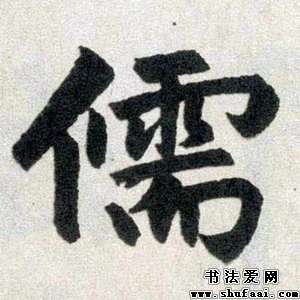 儒
书法爱网
www.shufaai.com